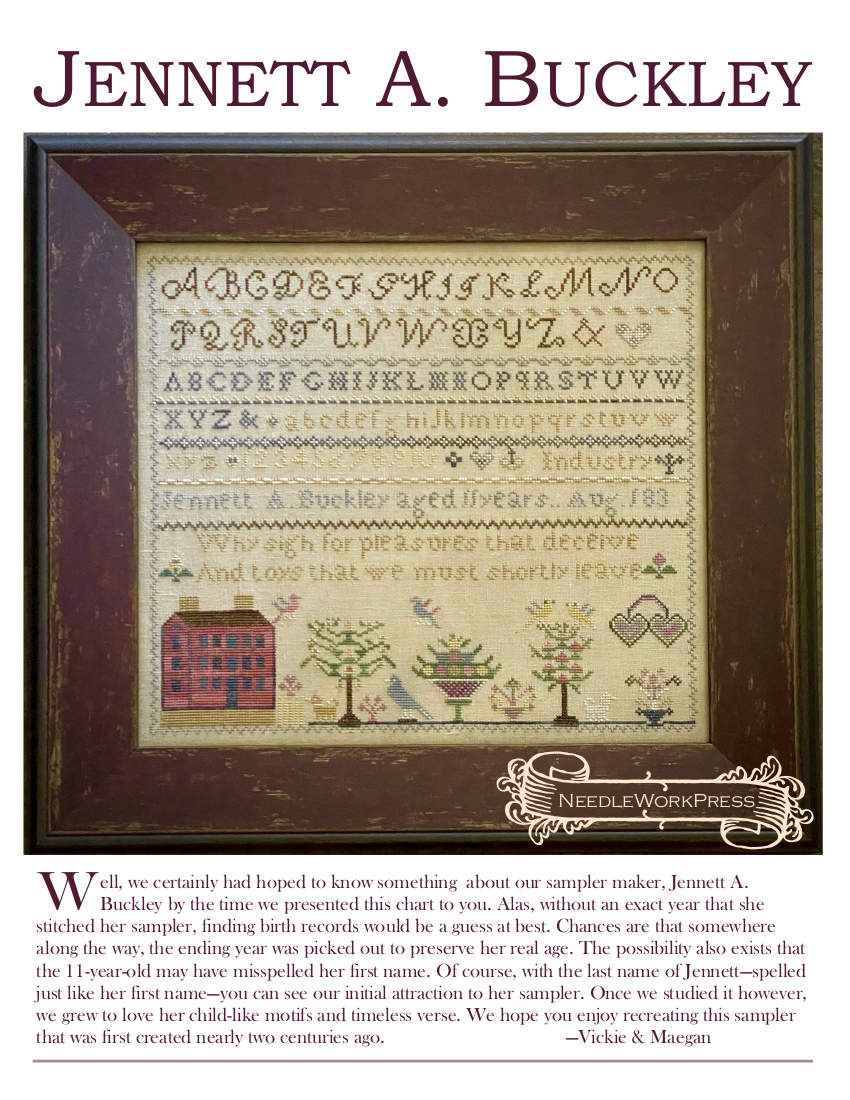 JENNETT A. BUCKLEY
A B C D E F G H I J K L M N O
P Q R S T U V W X Y Z &
A B C D E F G H I J K L M N O P Q R S T U V W
X Y Z & a b c d e f g h i J k l m n o p q r s t u v w
x y z 1 2 3 4 5 6 7 8 9 10 Industry
Jennett A. Buckley aged 11 years.. Aug 183
Why sigh for pleasures that deceive
And toys that we must shortly leave
NEEDLEWORKPRESS
Well, we certainly had hoped to know something about our sampler maker, Jennett A.
Buckley by the time we presented this chart to you. Alas, without an exact year that she
stitched her sampler, finding birth records would be a guess at best. Chances are that somewhere
along the way, the ending year was picked out to preserve her real age. The possibility also exists that
the 11-year-old may have misspelled her first name. Of course, with the last name of Jennett—spelled
just like her first name—you can see our initial attraction to her sampler. Once we studied it however,
we grew to love her child-like motifs and timeless verse. We hope you enjoy recreating this sampler
that was first created nearly two centuries ago. —Vickie & Maegan